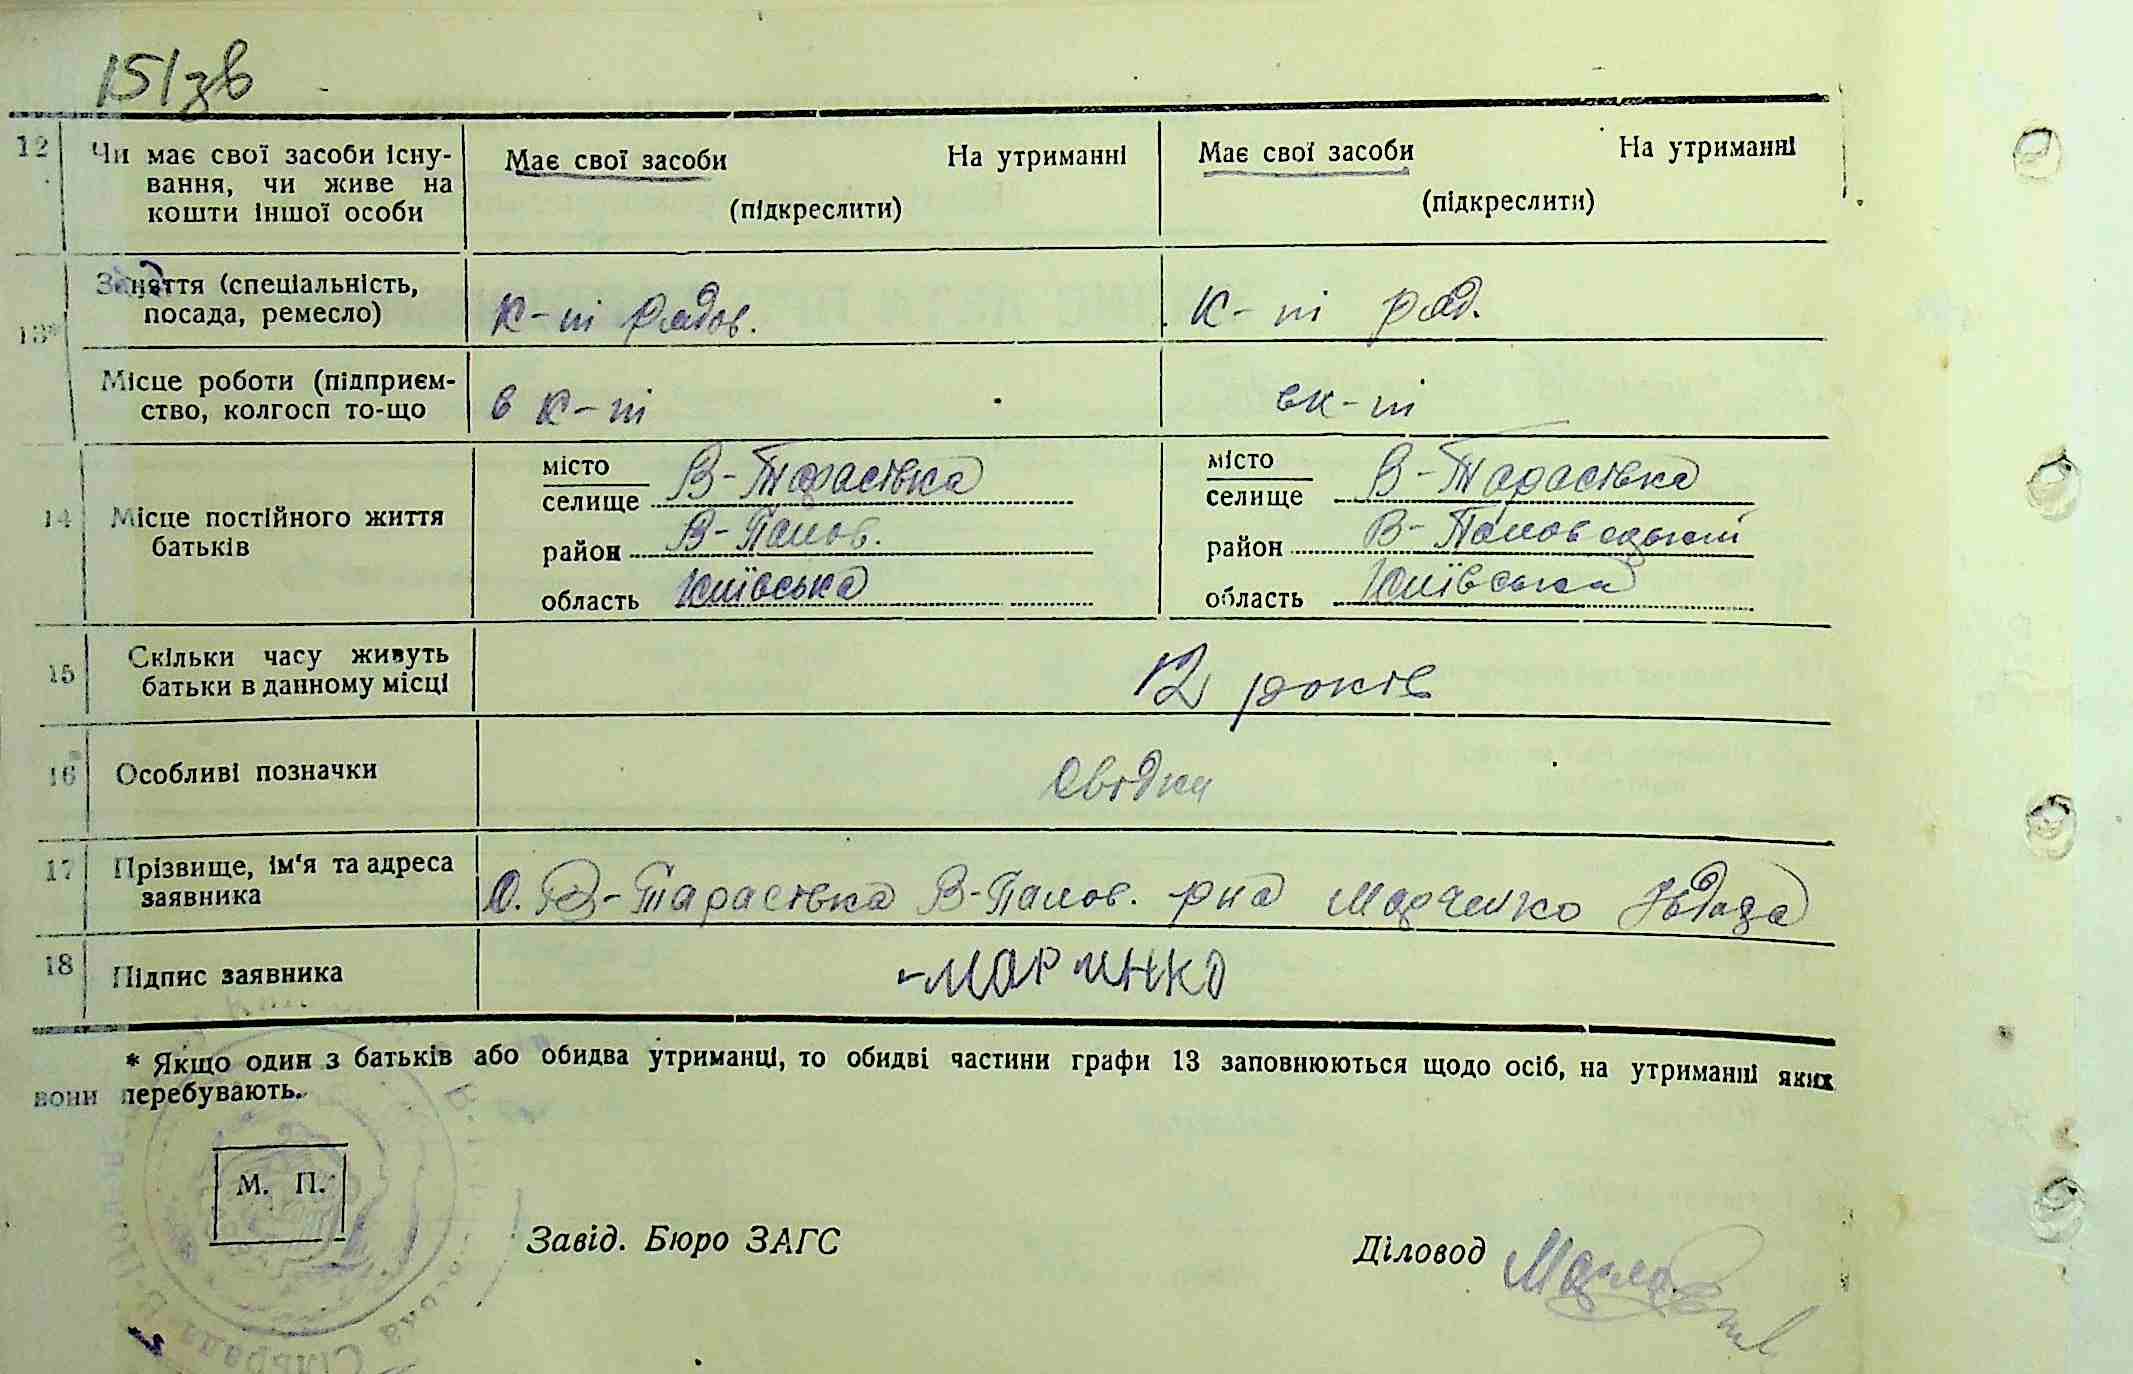 151зв
12 Чи має свої засоби існу- Має свої засоби На утриманні Має свої засоби На утриманні
вання, чи живе на
кошти іншої особи (підкреслити) (підкреслити)
13* Заняття (спеціальність, к-пі рядов. к-пі ряд.
посада, ремесло)
Місце роботи (підприєм- в к-пі в к-пі
ство, колгосп то-що
14 Місце постійного життя
батьків
місто В-Тарасівка місто В-Тарасівка
селище селище
район В-Полов. район В-Половецький
область Київська область Київська
15 Скільки часу живуть 12 років
батьки в данному місці
16 Особливі позначки Свідки
17 Прізвище, ім'я та адреса
заявника С. В-Тарасівка В-Полов. р-на Марченко
18 Підпис заявника Маринко
* Якщо один з батьків або обидва утриманці, то обидві частини графи 13 заповнюються щодо осіб, на утриманні яких
вони перебувають.
М. П.
Завід. Бюро ЗАГС Діловод